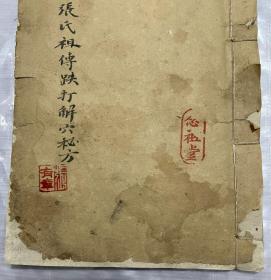 張氏祖傳跌打解穴秘方